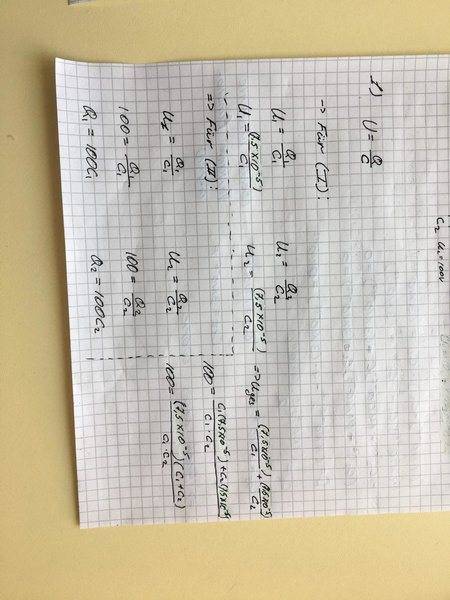 C₂ U₂=100V
1) U = Q/C
→ Für (I):
U₁ = Q₁/C₁ U₂ = Q₂/C₂
U₁ = (7,5×10⁻⁵)/C₁ U₂ = (7,5×10⁻⁵)/C₂ => Uges = (7,5×10⁻⁵)/C₁ + (7,5×10⁻⁵)/C₂
100 = (C₁(7,5×10⁻⁵) + C₂(7,5×10⁻⁵))/(C₁·C₂)
100 = ((7,5×10⁻⁵)(C₁+C₂))/(C₁·C₂)
=> Für (II):
U₁ = Q₁/C₁ U₂ = Q₂/C₂
100 = Q₁/C₁ 100 = Q₂/C₂
Q₁ = 100C₁ Q₂ = 100C₂